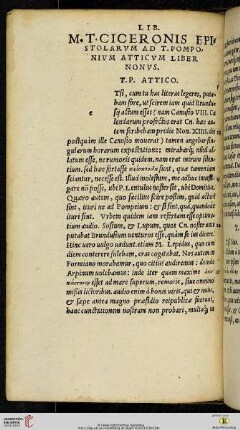 LIB.
M. T. CICERONIS EPI
STOLARVM AD T. POMPO
NIVM ATTICVM LIBER
NONVS.
T. P. ATTICO.
e
Tsi, cum tu has literas legeres, puta
bam fore, ut scirem iam quid Brundu
sij actum esset: nam Canusio VIII. Ca
lendarum profectus erat Cn. has au
tem scribebam pridie Non. XIIII. die
postquam ille Canusio mouerat) tamen angebar sin
gularum horarum expectatione: mirabarq́; nihil al
latum esse, ne rumoris quidem. nam erat mirum silen
tium. sed hæc fortasse sunt, quæ tamen iam
sciantur, necesse est. illud molestum, me adhuc inuesti
gare nõ posse, ubi P. Lentulus noster sit, ubi Domitius.
Quæro autem, quo facilius scire possim, quid acturi
sint, ituri ne ad Pompeium: & si sint, qua, quandóue
ituri sint. Vrbem quidem iam refertam esse optima
tium audio. Sosium, & Lupum, quos Cn. noster ante
putabat Brundusium uenturos esse, quàm se ius dicere.
Hinc uero uulgo uadunt. etiam M. Lepidus, quo cum
diem conterere solebam, cras cogitabat. Nos autem in
Formiano morabamur, quo citius audiremus: deinde
Arpinum uolebamus: inde iter quam maxime
esset ad mare superum, remotis, siue omnino
missis lictoribus. audio enim à bonis uiris, qui & nunc,
& sæpe antea magno præsidio reipublicæ fuerunt,
hanc cunctationem nostram non probari, multaq́; in